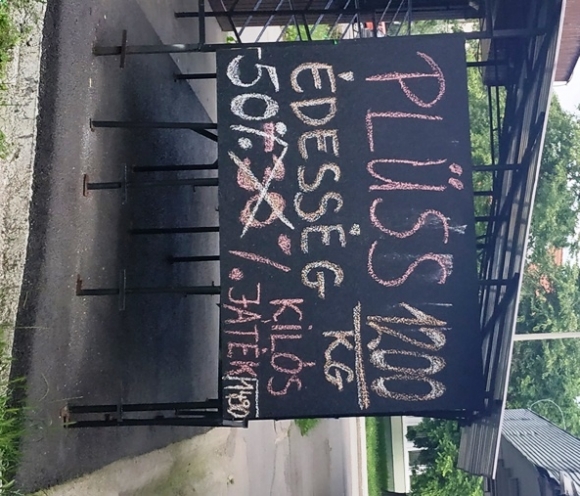 PLÜSS 1200
ÉDESSÉG KG
-50% % KILÓS
JÁTÉK 1490